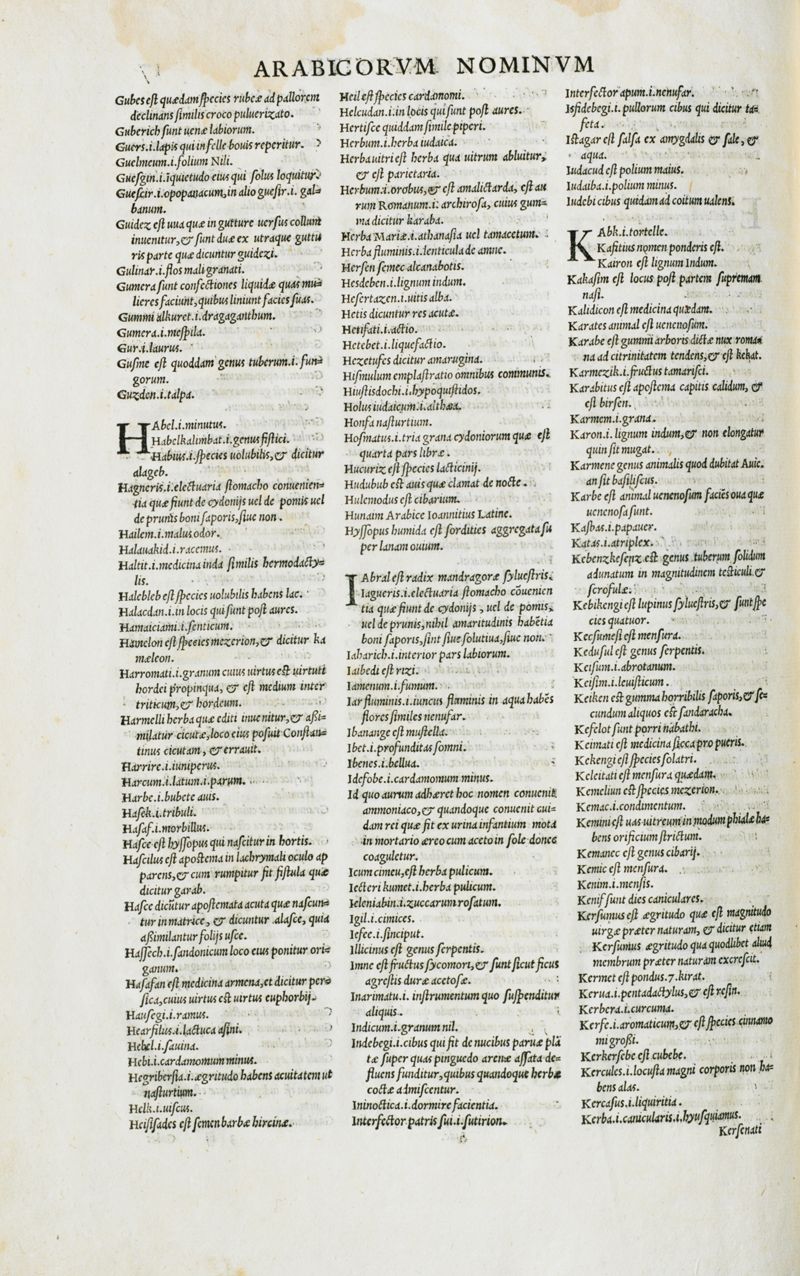 ARABICORVM NOMINVM
Gubes eſt quædam ſpecies rubeæ ad pallorem
declinans ſimilis croco puluerizato.
Guberich ſunt uenæ labiorum.
Guers.i.lapis qui in felle bouis reperitur.
Guelmeum.i.folium Nili.
Gueſgin.i.inquietudo eius qui ſolus loquitur.
Gueſcir.i.opopanacum,in alio gueſir.i. gal-
banum.
Guidez eſt uua quæ in gutture uerſus collum
inuenitur,& ſunt duæ ex utraque guttu
ris parte quæ dicuntur guidezi.
Gulinar.i.flos mali granati.
Gumera ſunt confectiones liquidæ quas mu=
lieres faciunt,quibus liniunt facies ſuas.
Gummi alkuret.i.dragaganthum.
Gumera.i.meſpila.
Gur.i.laurus.
Guſme eſt quoddam genus tuberum.i. fun-
gorum.
Guzden.i.talpa.
HAbel.i.minutus.
Habelkalimbat.i.genus fiſtici.
Habius.i.ſpecies uolubilis,& dicitur
alageb.
Hagneris.i.electuaria ſtomacho conuenien=
tia quæ fiunt de cydonijs uel de pomis uel
de prunis boni ſaporis,ſiue non.
Hailem.i.malus odor.
Halauakid.i.racemus.
Haltit.i.medicina inda ſimilis hermodacty=
lis.
Halebleb eſt ſpecies uolubilis habens lac.
Halacdan.i.in locis qui ſunt poſt aures.
Hamaiciami.i.ſenticum.
Hamelon eſt ſpecies mezerion,& dicitur ka
mæleon.
Harromati.i.granum cuius uirtus eſt uirtuti
hordei propinqua, & eſt medium inter
triticum,& hordeum.
Harmelli herba quæ editi inuenitur,& aßi=
milatur cicutæ,loco eius poſuit Conſtan=
tinus cicutam, & errauit.
Harrire.i.iuniperus.
Harcum.i.latium.i.parum.
Harbe.i.bubete auis.
Haſek.i.tribuli.
Haſaf.i.morbillus.
Haſce eſt hyſſopus qui naſcitur in hortis.
Haſcilus eſt apoſtema in lachrymali oculo ap
parens,& cum rumpitur fit fiſtula quæ
dicitur garab.
Haſce dicūtur apoſtemata acuta quæ naſcun=
tur in matrice, & dicuntur alaſce, quia
aßimilantur folijs uſce.
Haſſech.i.ſandonicum loco eius ponitur ori=
ganum.
Haſafan eſt medicina armena,et dicitur per=
ſica,cuius uirtus eſt uirtus euphorbij.
Hauſegi.i.ramus.
Hearfilus.i.lactuca aſini.
Hebel.i.ſauina.
Hebi.i.cardamomum minus.
Hegriberſia.i.ægritudo habens acuitatem ut
naſturtium.
Helk.i.uiſcus.
Heiſiſades eſt ſemen barbæ hircinæ.
Heil eſt ſpecies cardamomi.
Helcudan.i.in locis qui ſunt poſt aures.
Hertiſce quiddam ſimile piperi.
Herbum.i.herba iudaica.
Herba uitri eſt herba qua uitrum abluitur,
& eſt parietaria.
Herbum.i.orobus,& eſt amalictarda, eſt au
rum Romanum.i: archiroſa, cuius gum=
ma dicitur karaba.
Herba Mariæ.i.athanaſia uel tamacetum.
Herba fluminis.i.lenticula de amne.
Herſen ſemec alcanabotis.
Hesdeben.i.lignum indum.
Heſertazen.i.uitis alba.
Hetis dicuntur res acutæ.
Hetifati.i.actio.
Hetebet.i.liquefactio.
Hezetufes dicitur amarugina.
Hiſmulum emplaſtratio omnibus communis.
Hiuſtisdochi.i.hypoquiſtidos.
Holus iudaicum.i.althæa.
Honfa naſturtium.
Hoſmatus.i.tria grana cydoniorum quæ eſt
quarta pars libræ.
Hucuriz eſt ſpecies lacticinij.
Hudubub eſt auis quæ clamat de nocte.
Hulemodus eſt cibarium.
Hunaim Arabice Ioannitius Latine.
Hyſſopus humida eſt ſordities aggregata ſu
per lanam ouium.
IAbral eſt radix mandragoræ ſylueſtris.
Iagueris.i.electuaria ſtomacho cōuenien
tia quæ fiunt de cydonijs, uel de pomis,
uel de prunis,nihil amaritudinis habētia
boni ſaporis,ſint ſiue ſolutiua,ſiue non.
Iaharich.i.interior pars labiorum.
Iaibedi eſt rizi.
Iamenum.i.fumum.
Iar fluminis.i.iuncus fluminis in aqua habēs
flores ſimiles nenufar.
Ibanange eſt muſtella.
Ibet.i.profunditas ſomni.
Ibenes.i.bellua.
Idefobe.i.cardamomum minus.
Id quo aurum adhæret hoc nomen conuenit
ammoniaco,& quandoque conuenit cui=
dam rei quæ fit ex urina infantium mota
in mortario æreo cum aceto in ſole donec
coaguletur.
Icum cimeu,eſt herba pulicum.
Iecteri kumet.i.herba pulicum.
Ieleniabin.i.zuccarum roſatum.
Igil.i.cimices.
Iefee.i.ſinciput.
Illicinus eſt genus ſerpentis.
Imne eſt fructus ſycomori,& ſunt ſicut ficus
agreſtis duræ acetoſæ.
Inarimatu.i. inſtrumentum quo ſuſpenditur
aliquis.
Indicum.i.granum nil.
Indebegi.i.cibus qui fit de nucibus paruæ plā
tæ ſuper quas pinguedo arenæ aſſata de=
fluens funditur,quibus quandoque herbæ
coctæ admiſcentur.
Ininoctica.i.dormire facientia.
Interfector patris ſui.i.ſutirion.
Interfector apum.i.nenufar.
Isfidebegi.i. pullorum cibus qui dicitur ta=
feta.
Iſtagar eſt ſalſa ex amygdalis & ſale, &
aqua.
Iudacud eſt polium maius.
Iudaiba.i.polium minus.
Iudebi cibus quidam ad coitum ualens.
KAbk.i.tortelle.
Kafitius nomen ponderis eſt.
Kairon eſt lignum Indum.
Kakaſim eſt locus poſt partem ſupremam
naſi.
Kalidicon eſt medicina quædam.
Karates animal eſt uenenoſum.
Karabe eſt gummi arboris dictæ nux roma
na ad citrinitatem tendens,& eſt kekat.
Karmezik.i.fructus tamariſci.
Karabitus eſt apoſtema capitis calidum, &
eſt birſen.
Karmem.i.grana.
Karon.i. lignum indum,& non elongatur
quin ſit mugat.
Karmene genus animalis quod dubitat Auic.
an ſit baſiliſcus.
Karbe eſt animal uenenoſum faciēs oua quæ
uenenoſa ſunt.
Kaſbas.i.papauer.
Katas.i.atriplex.
Kebenzkeſenz eſt genus tuberum ſolidum
adunatum in magnitudinem teſticuli &
ſcrofulæ.
Kebikengi eſt lupinus ſylueſtris,& ſunt ſpe
cies quatuor.
Kecſumeſi eſt menſura.
Keduſul eſt genus ſerpentis.
Keiſum.i.abrotanum.
Keiſim.i.leuiſticum.
Keiken eſt gumma horribilis ſaporis,& ſe=
cundum aliquos eſt ſandaracha.
Kefelot ſunt porri nabathi.
Keimati eſt medicina ſicca pro pueris.
Kekengi eſt ſpecies ſolatri.
Keleitati eſt menſura quædam.
Kemeliun eſt ſpecies mezerion.
Kemac.i.condimentum.
Kemini eſt uas uitreum in modum phialæ ha=
bens orificium ſtrictum.
Kemanec eſt genus cibarij.
Kemic eſt menſura.
Kenim.i.menſis.
Kenif ſunt dies caniculares.
Kerſumus eſt ægritudo quæ eſt magnitudo
uirgæ præter naturam, & dicitur etiam
Kerſumus ægritudo qua quodlibet aliud
membrum præter naturam excreſcit.
Kermet eſt pondus.7.kirat.
Kerua.i.pentadactylus,& eſt reſin.
Kerbera.i.curcuma.
Kerfe.i.aromaticum,& eſt ſpecies cinnamo
mi großi.
Kerkerſebe eſt cubebe.
Kercules.i.locuſta magni corporis non ha=
bens alas.
Kercaſus.i.liquiritia.
Kerba.i.canicularis.i.hyuſquiamus.
Kerſenati